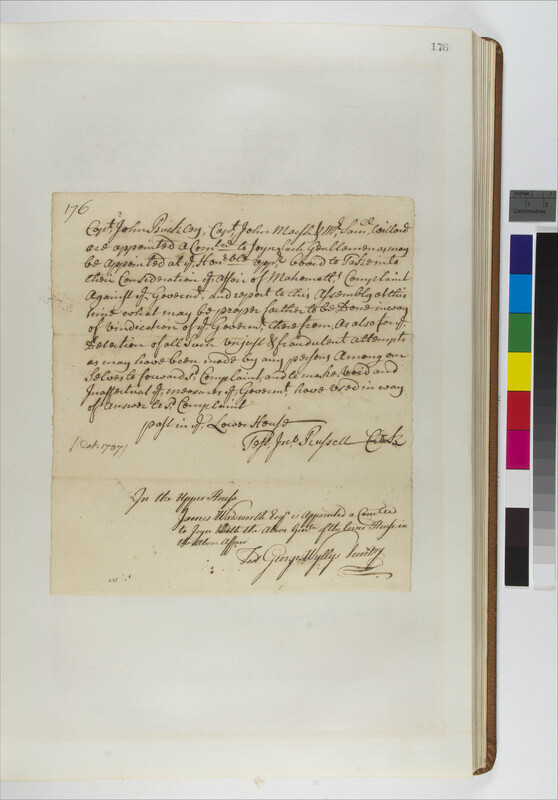 176
176
Capt. John Bulkley, Capt. John Marsh & Mr. Saml. Willard
are appointed a Comtee to Joyn Such Gentlemen as may
be Appointed at ye Honble uppr. board to Take into
their Consideration ye affair of Mahomatts Complaint
Against ye Governt, and report to this Assembly at this
time what may be proper farther to be Done in way
of Vindication of ye Governt, there from, as also for ye
Detection of all such unjust & fraudulent attempts
as may have been made by any persons Among our
Selves to forward sd. Complaint, and to make Void and
Inaffectual ye measures ye Governt, have Used in way
of Answer to sd. Complaint
past in ye Lower House
Test Jno. Russell Clerk
[Oct. 1737]
In the Upper House
James Wadsworth Esqr is Appointed a Comtee
to Joyn with the Above Gentn of the lower House in
the Above Affair
Test George Wyllys Secretry